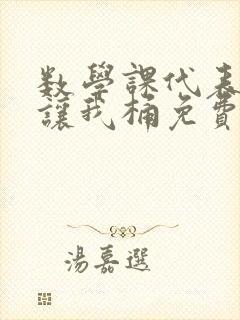 數學課代表
讓我桶免費
湯嘉選